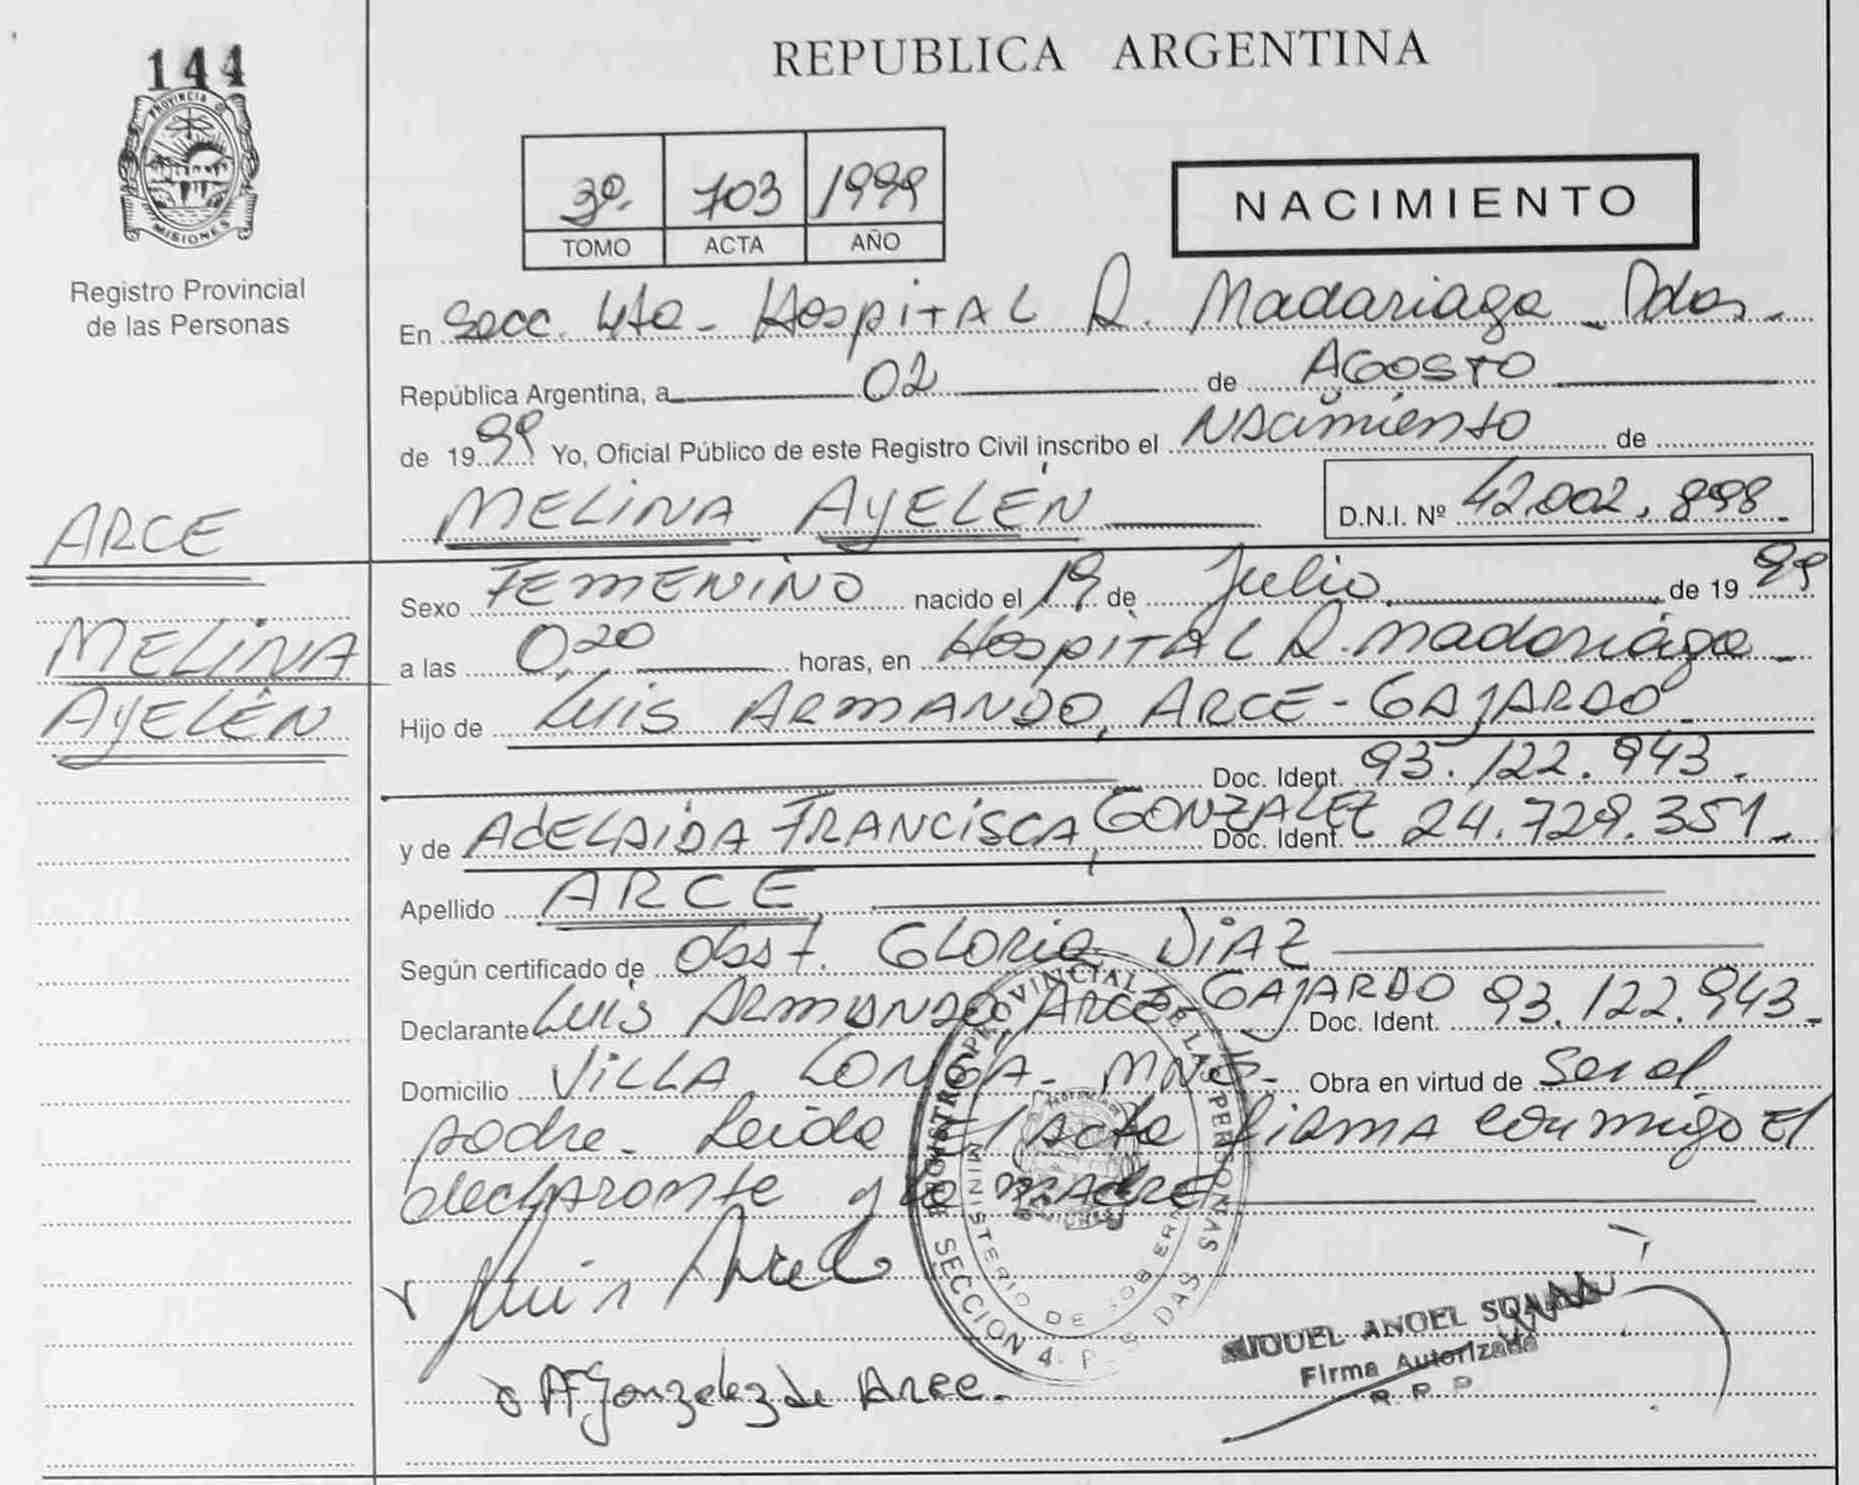 144
PROVINCIA D
MISIONES
Registro Provincial
de las Personas
ARCE
MELINA
AYELÉN
REPUBLICA ARGENTINA
3º 703 1999
TOMO ACTA AÑO
NACIMIENTO
En Secc. 4ta - HOSPITAL R. Madariaga - Pdas.
República Argentina, a 02 de AGOSTO
de 1999 Yo, Oficial Público de este Registro Civil inscribo el Nacimiento de
MELINA AYELÉN D.N.I. Nº 42.002.898.
Sexo FEMENINO nacido el 19 de Julio de 1999
a las 0,20 horas, en HOSPITAL R. Madariaga -
Hijo de Luis ARMANDO, ARCE - GAJARDO
Doc. Ident. 93.122.943.
y de ADELAIDA FRANCISCA, GONZALEZ Doc. Ident. 24.729.351.
Apellido ARCE
Según certificado de Obst. GLORIA DIAZ
Declarante Luis ARMANDO, ARCE - GAJARDO Doc. Ident. 93.122.943.
Domicilio VILLA LONGA - MNES - Obra en virtud de Ser el
padre - Leída El acta firma conmigo El
declarante y la madre
REGISTRO PROVINCIAL DE LAS PERSONAS
MINISTERIO DE GOBIERNO
SECCION 4
Luis Arce
A F Gonzalez de Arce.
MIGUEL ANGEL
Firma Autorizada
R. P. P